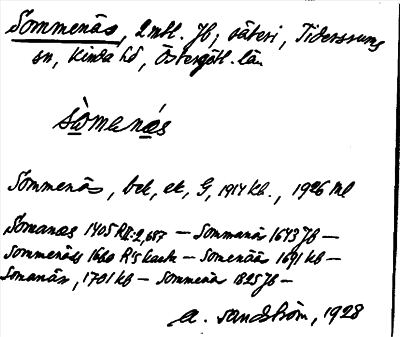 Sommenäs, 2 mtl. Jb, säteri, Tidersrums
sn, Kinda hd, Östergötl. län
sòmenæs
Sommenäs, bek, ek, G, 1914 kb., 1926 ml
Somanæs 1405 RII:2,687 — Sommanäs 1643 Jb —
Sommenääs 1680 R's kart — Somenääs 1691 kb —
Somanäs, 1701 kb — Sommenäs 1825 Jb —
A. Sandström, 1928